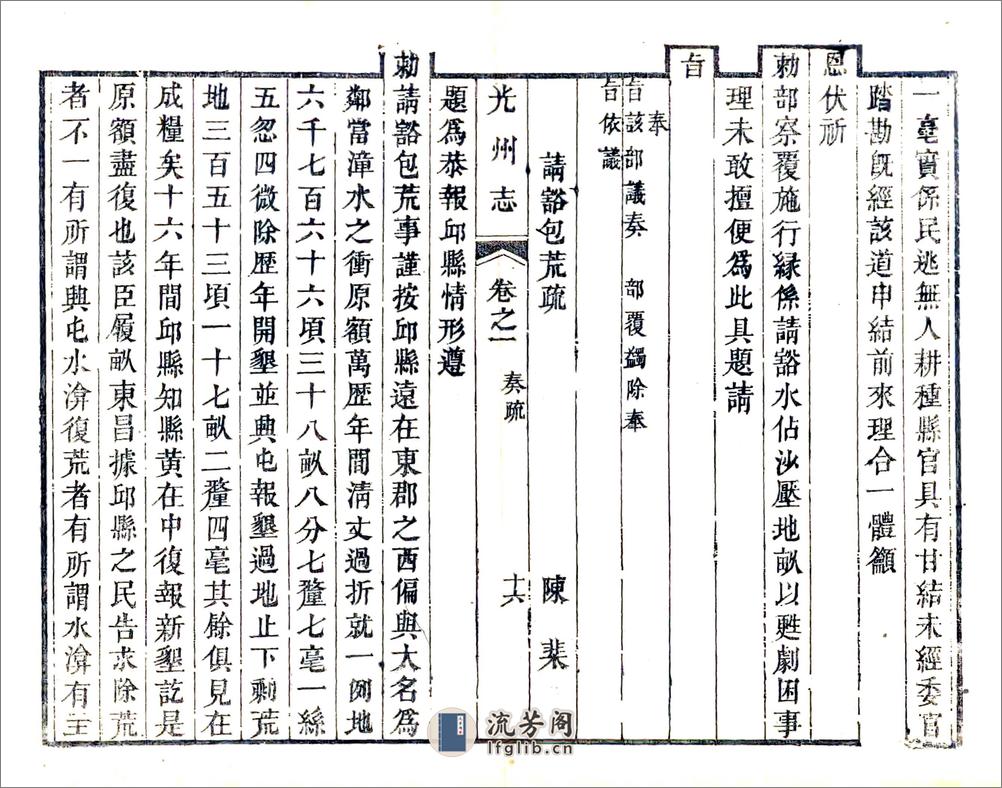 一毫實係民逃無人耕種縣官具有甘結未經委官
踏勘既經該道申結前來理合一體籲
恩伏祈
勅部察覆施行緣係請豁水佔沙壓地畝以甦劇困事
理未敢擅便爲此具題請
旨
奉
旨該部議奏 部覆蠲除奉
旨依議
請豁包荒疏 陳棐
光州志 卷之一 奏疏 十六
題爲恭報邱縣情形遵
勅請豁包荒事謹按邱縣遠在東郡之西偏與大名爲
鄰當漳水之衝原額萬歷年間淸丈過折就一例地
六千七百六十六頃三十八畝八分七釐七毫一絲
五忽四微除歷年開墾並興屯報墾過地止下剩荒
地三百五十三頃一十七畝二釐四毫其餘俱見在
成糧矣十六年間邱縣知縣黄在中復報新墾訖是
原額盡復也該臣履畝東昌據邱縣之民告求除荒
者不一有所謂興屯水渰復荒者有所謂水渰有主
流芳阁
lfglib.cn